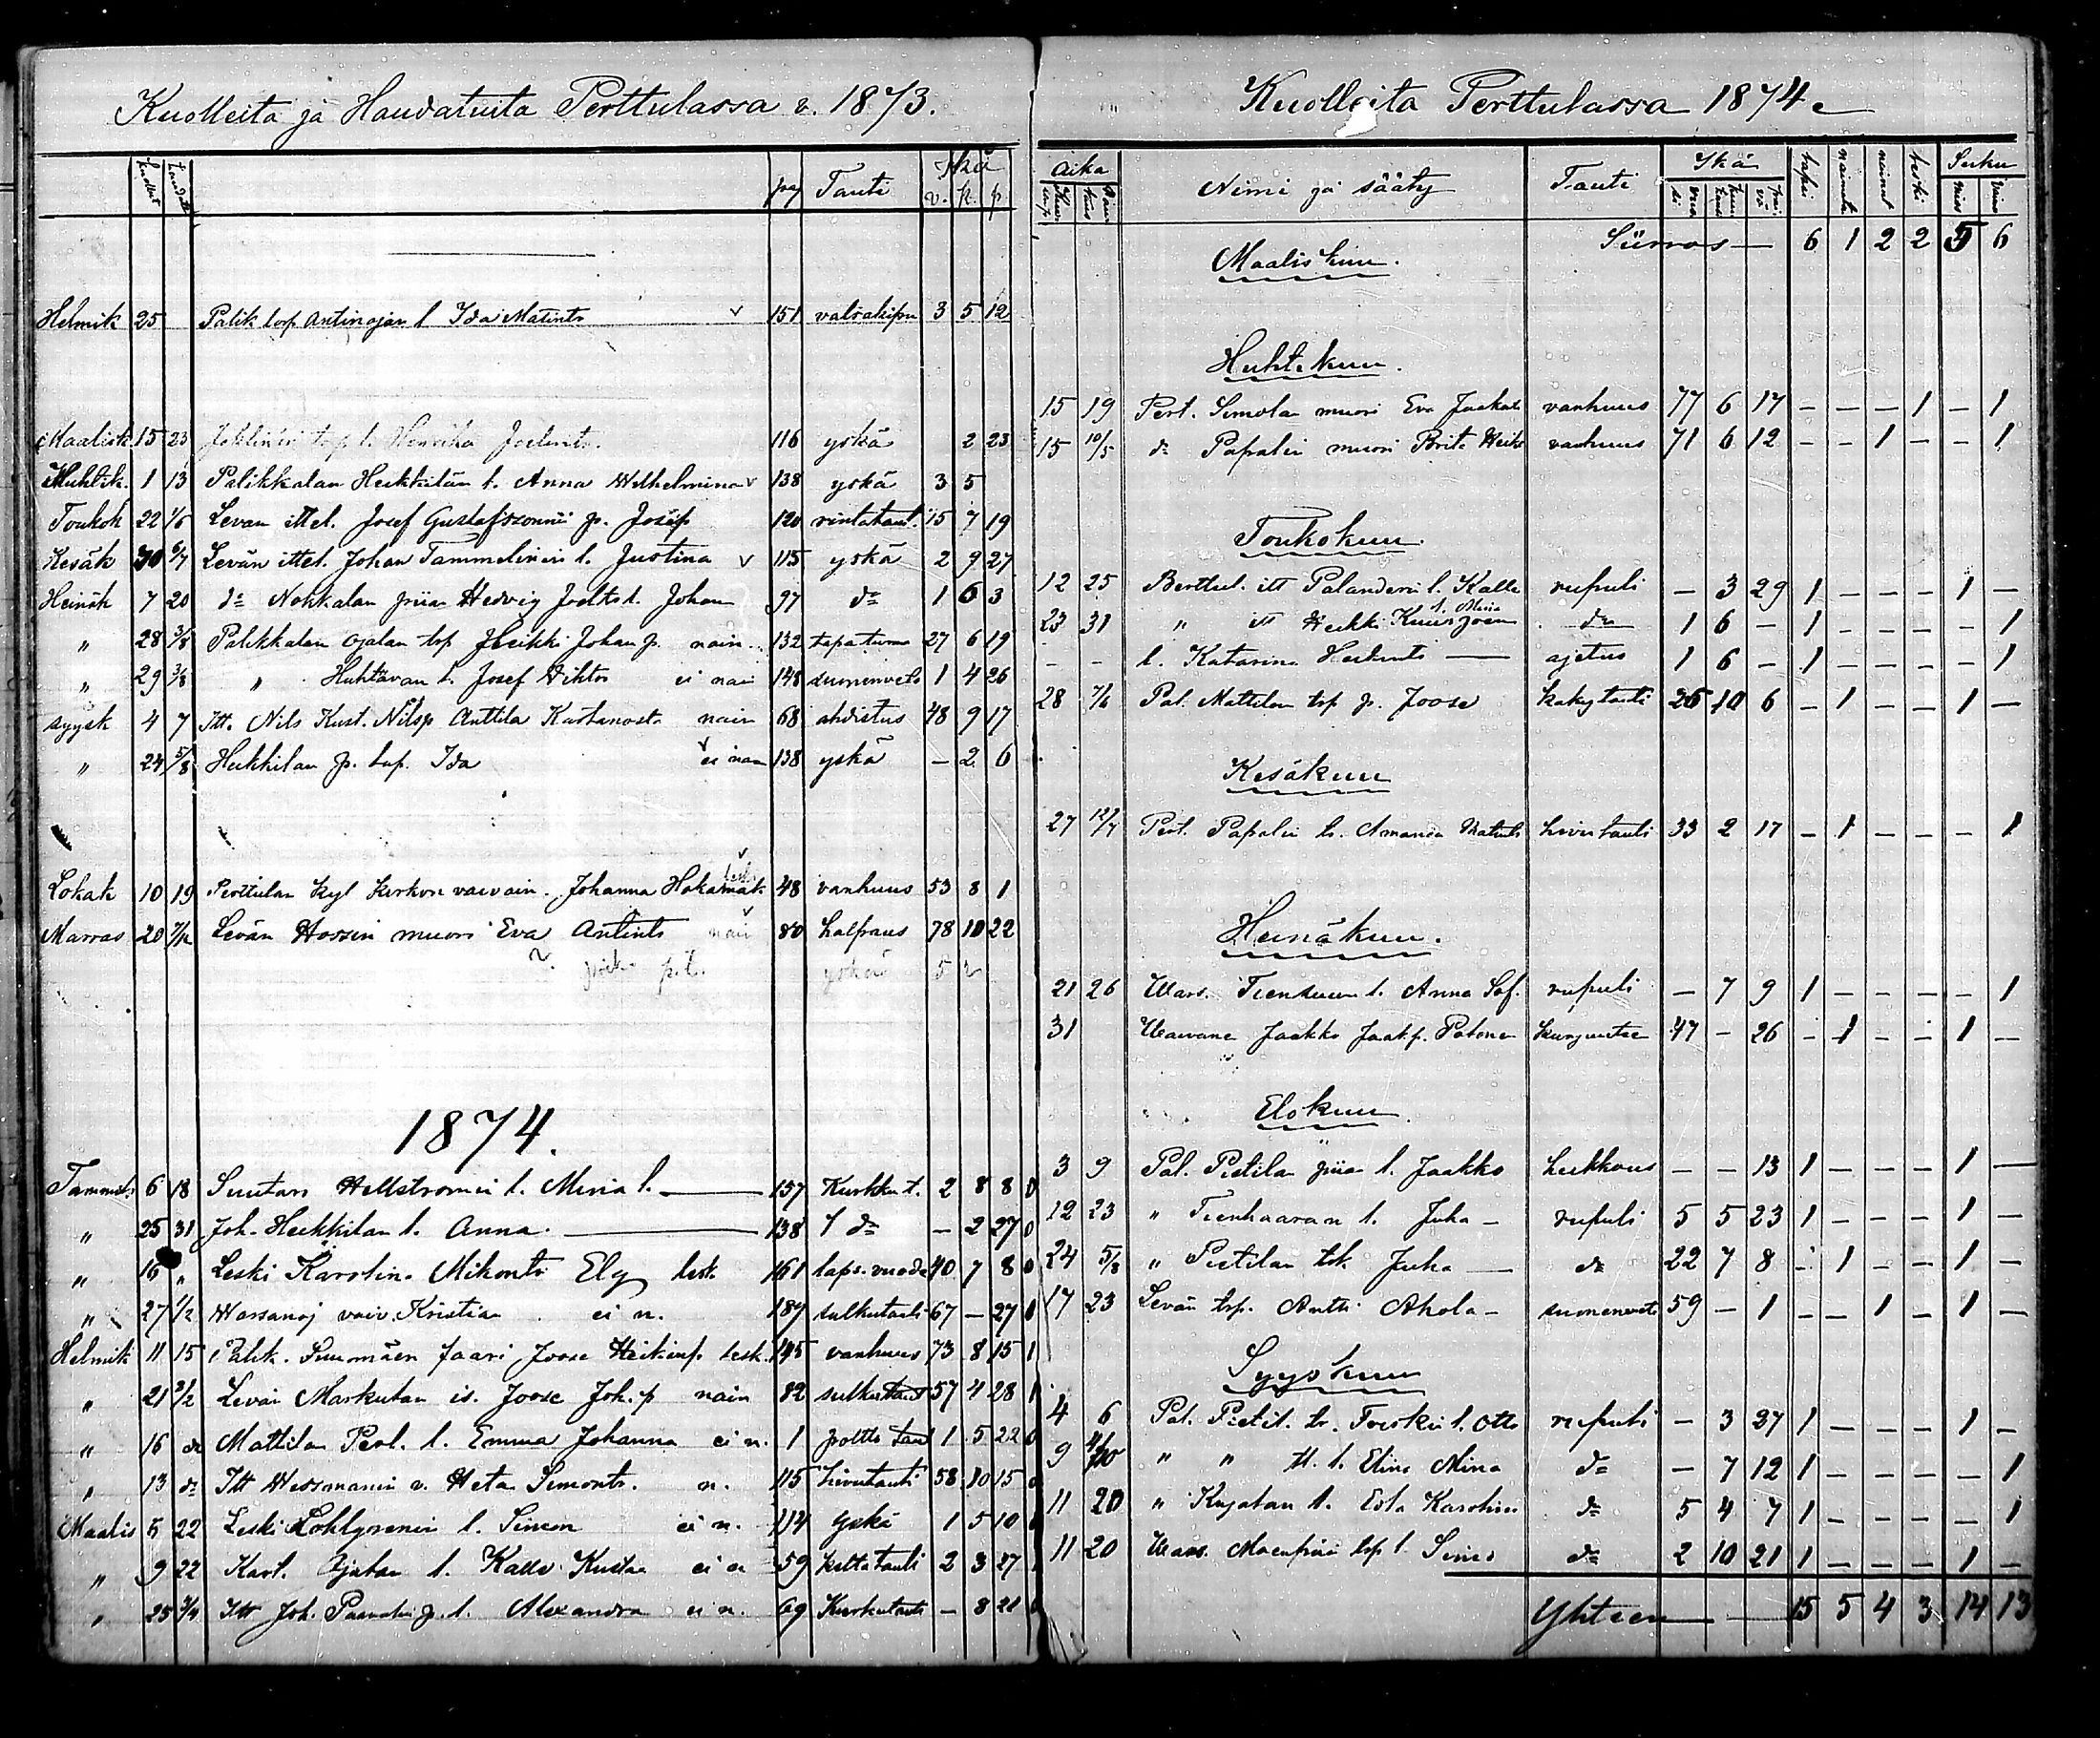 Kuolleita ja Haudatuita Perttulassa v. 1873.
pag Tauti Ikä
v. k. p.
Helmik 25 Palik torp Antinojan l Ida Matints 151 vatsakipu 3 5 12
Maalisk 15 23 torp l. Henrika Joelints. 116 yskä 2 23
Huhtik. 1 13 Palikkalan Heikkilän l. Anna Wilhelmina 138 yskä 3 5
Toukok 22 1/6 Levan ittel. Josef Gustafssonnii p. Josep 120 rintataut. 15 7 19
Kesäk 30 6/7 Levän ittel. Johan Tammelinin l. Justina 115 yskä 2 9 27
Heinäk 7 20 do Nokkalan piian Hedvig Joelts l. Johan 97 do 1 6 3
" 28 3/8 Palikkalan Ojalan torp Heikki Johan p. nain. 132 tapaturma 27 6 19
" 29 3/8 " Huhtävan l. Josef Viktor ei nain 148 suonenveto 1 4 26
Syysk 4 7 Itt. Nils Kust. Nilsp Anttila Kartanosta nain 68 ahdistus 48 9 17
" 24 5/8 Heikkilan p. tup. Ida ei nain 138 yskä – 2 6
Lokak 10 19 Perttulan kyl kirkon vaivain. Johanna Hakamäk lesk 48 vanhuus 53 8 1
Marras 20 7/12 Levän Hossin muori Eva Antints nain 80 halpaus 78 10 22
yskä 5 2
1874.
Tammik 6 18 Suutari Hellstromin l. Miria l. 157 Kurkku t. 2 8 8 0
" 25 31 Joh. Heikkilan l. Anna. 138 do – 2 27 0
" 16 " Leski Karolina Mikonts Elg lesk 161 laps. vuode 40 7 8 0
" 27 1/2 Wassanoj vaiv. Kristian ei n. 187 sulkutauti 67 – 27 0
Helmik 11 15 Palik. Suomäen faari Joose Heikinp. lesk. 145 vanhuus 73 8 15 1
" 21 Levan Markulan is. Joose Joh. p nain 82 sulkutaut 57 4 28 1
" 16 do Mattilan Perl. l. Emma Johanna ei n. 1 poltto taut 1 5 22 0
" 13 do Itt Wessmanin v. Heta Simonts. n. 115 hivutauti 58 10 15
Maalis 5 22 Leski Lohlgrenin l. Simon ei n. 114 Yskä 1 5 10
" 9 22 Kart. Ojatan l. Kalle Kustaa ei n 59 keltatauti 2 3 27
" 25 Itt Joh. Paavalin p. l. Alexandra ei n. 69 Kurkutauti – 8 21
Kuolleita Perttulassa 1874
Aika Nimi ja sääty Tauti Ikä lapsi nainut leski Suku
Siirros — 6 1 2 2 5 6
Maaliskuu.
Huhtikuu.
15 19 Pert. Simolan muori Eva Jaakols vanhuus 77 6 17 – – – 1 – 1
15 10/5 do Papalin muori Brita Heik vanhuus 71 6 12 – – 1 – – 1
Toukokuu.
12 25 Berthul. itt Palanderin l. Kalle rupuli – 3 29 1 – – – 1 –
23 31 " itt Heikki Kuusjoen l. Maria do 1 6 – 1 – – – – 1
– – l. Katarina Heikints — ajetus 1 6 – 1 – – – – 1
28 7/6 Pal. Mattilan torp p. Joose kakytauti 26 10 6 – 1 – – 1 –
Kesäkuu
27 12/7 Pert. Papalin tr. Amanda Matints hivutauti 33 2 17 – 1 – – – 1
Heinäkuu.
21 26 Wars. Tiensuun l. Anna Sof. rupuli – 7 9 1 – – – – 1
31 Waivane Jaakko Jaak.p. Patonen 47 – 26 – 1 – – 1 –
Elokuu
3 9 Pal. Pietilan piian l. Jaakko heikkous – – 13 1 – – – 1 –
12 23 " Tienhaaran l. Juha – rupuli 5 5 23 1 – – – 1 –
24 5/8 " Pietilan tok Juha — do 22 7 8 – 1 – – 1 –
17 23 Levän trp. Antti Ahola – suonenvet 59 – 1 – – 1 – 1 –
Syyskuu
4 6 Pal. Pietil. tr. l. Otto rupuli – 3 27 1 – – – 1 –
9 " " It. l. Elina Mina do – 7 12 1 – – – – 1
11 20 " Kujatan l. Eva Karolina do 5 4 7 1 – – – – 1
11 20 Wars. torp l. Simo do 2 10 21 1 – – – 1 –
Yhteen — 15 5 4 3 14 13